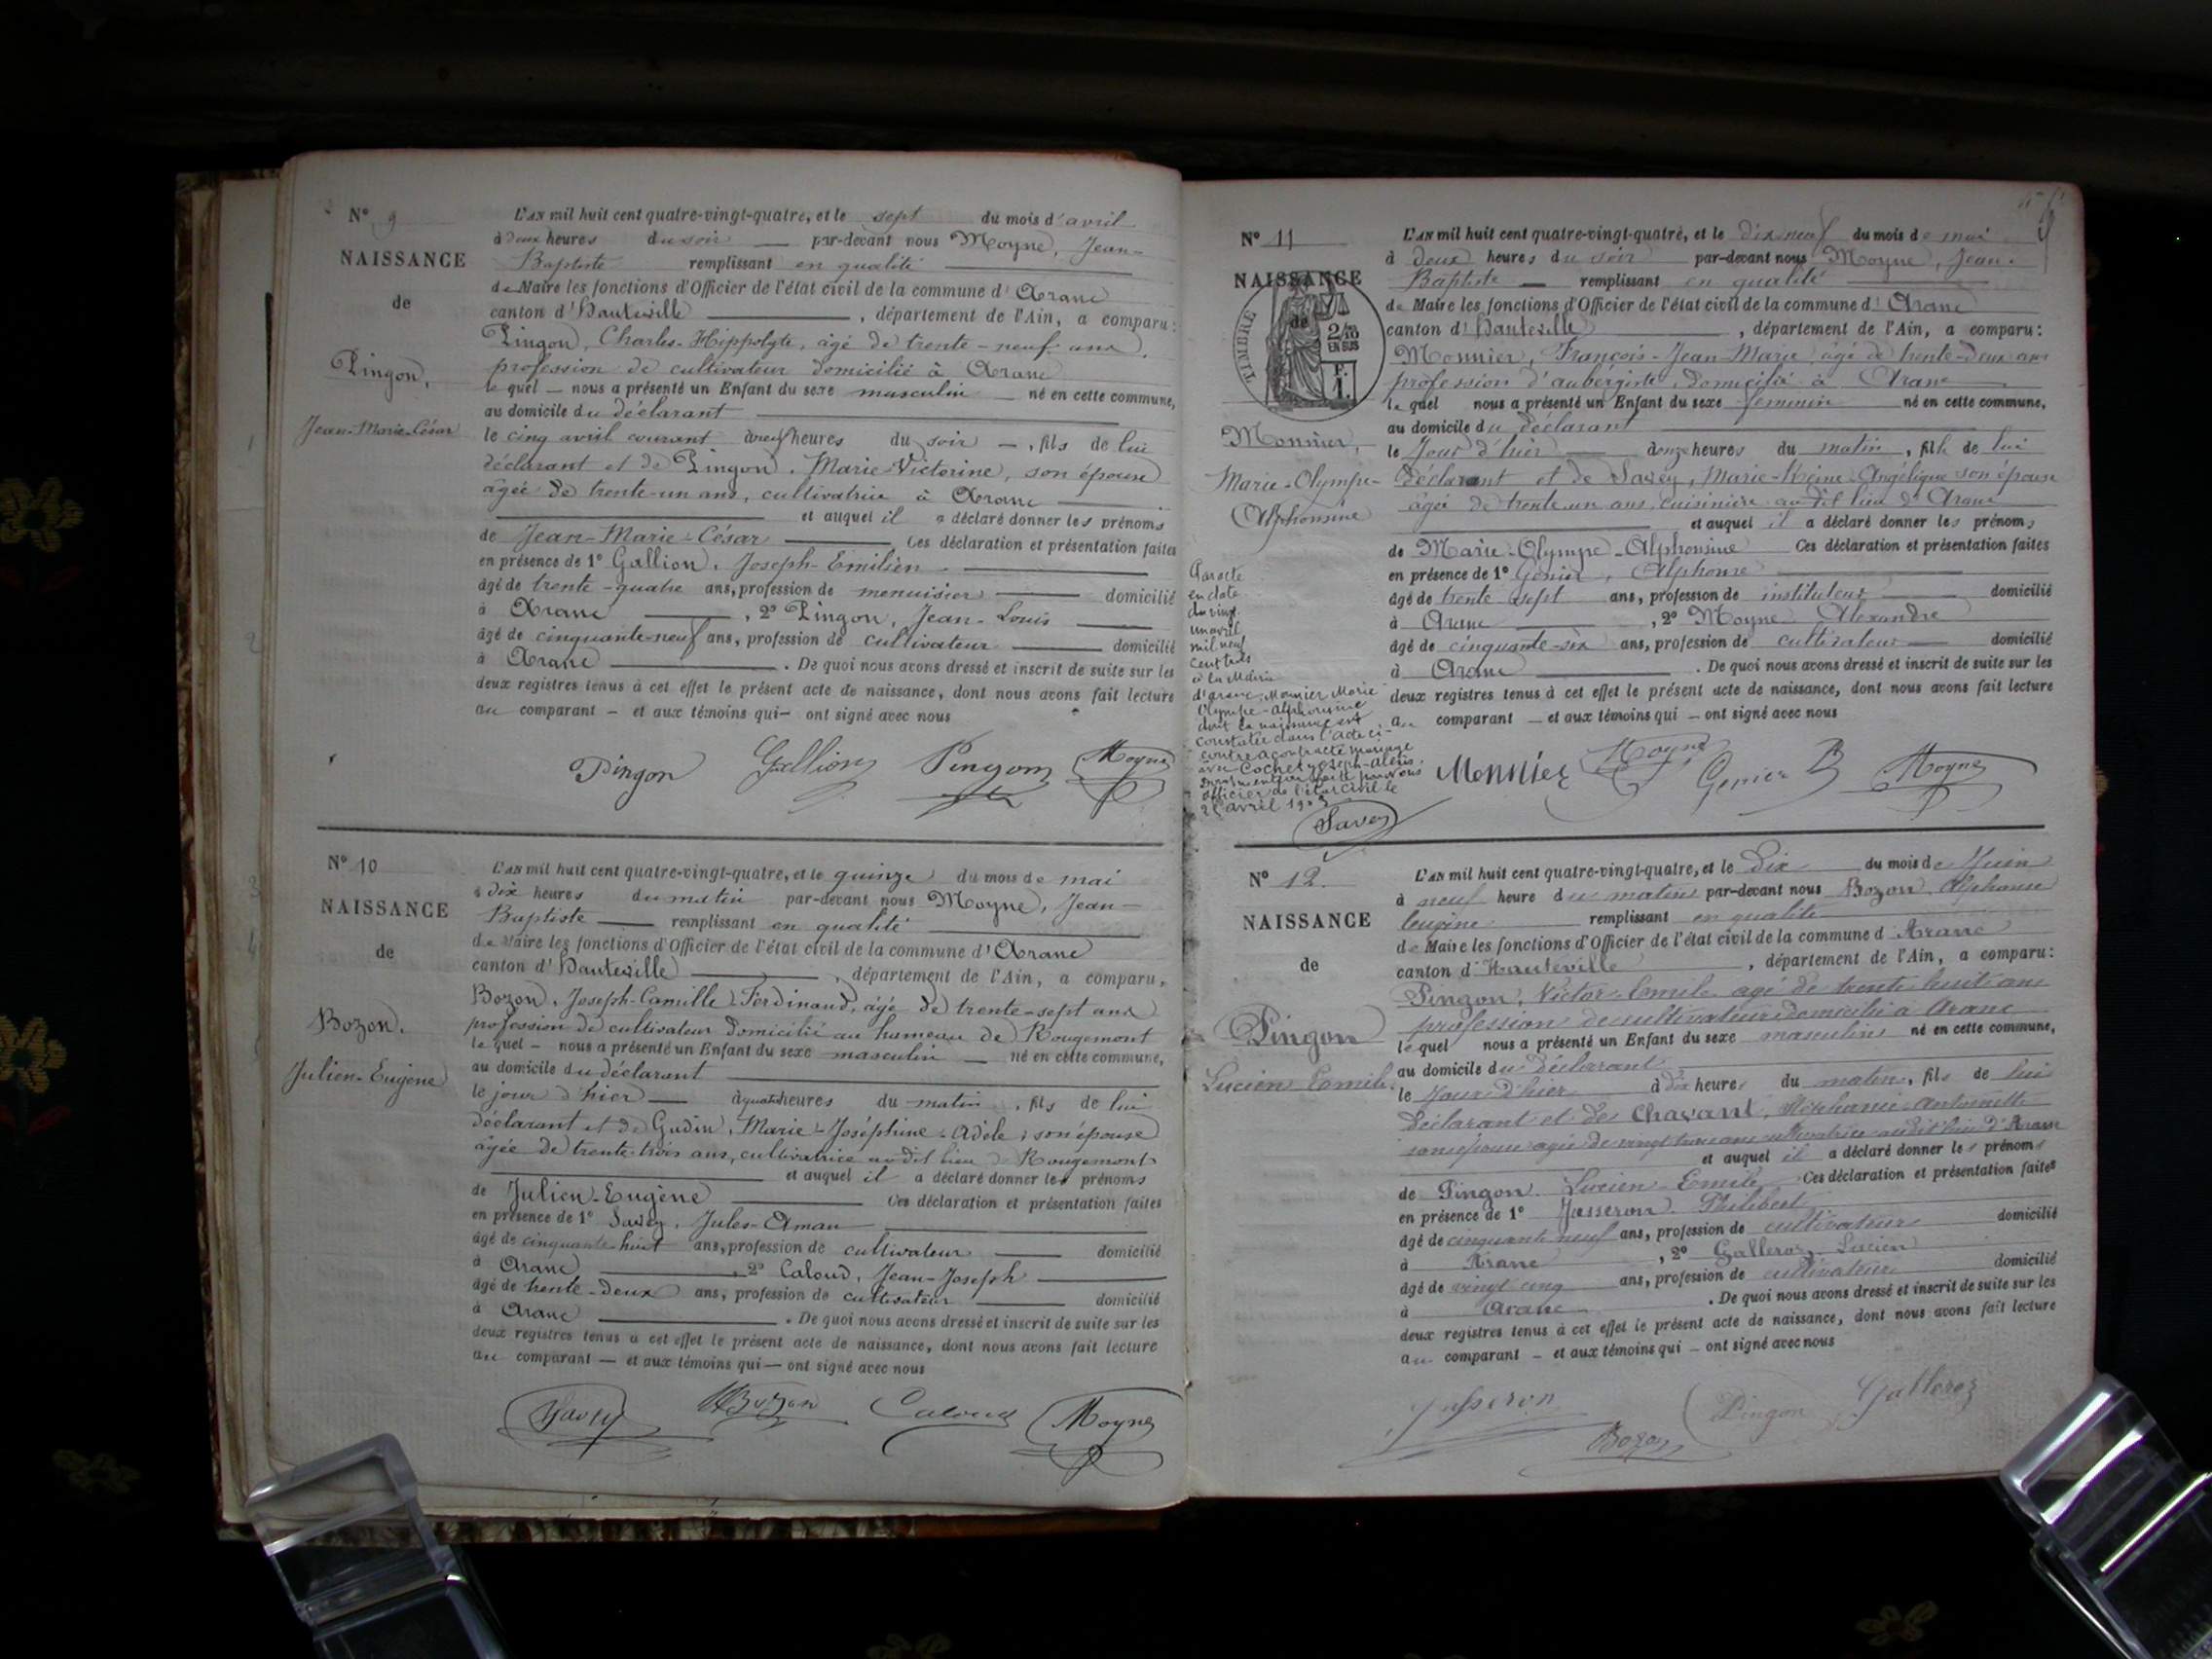 N° 9
NAISSANCE
de
Pingon,
Jean-Marie-César
L'AN mil huit cent quatre-vingt-quatre, et le sept du mois d'avril
à deux heures du soir par-devant nous Moyne, Jean-
Baptiste remplissant en qualité
de Maire les fonctions d'Officier de l'état civil de la commune d'Aranc
canton d'Hauteville, département de l'Ain, a comparu:
Pingon, Charles-Hippolyte, âgé de trente-neuf ans,
profession de cultivateur domicilié à Aranc
lequel nous a présenté un Enfant du sexe masculin né en cette commune,
au domicile du déclarant
le cinq avril courant à neuf heures du soir, fils de lui
déclarant et de Pingon, Marie-Victorine, son épouse
âgée de trente-un ans, cultivatrice à Aranc
et auquel il a déclaré donner les prénoms
de Jean-Marie-César Ces déclaration et présentation faites
en présence de 1° Gallion, Joseph-Emilien
âgé de trente-quatre ans, profession de menuisier domicilié
à Aranc, 2° Pingon, Jean-Louis
âgé de cinquante-neuf ans, profession de cultivateur domicilié
à Aranc. De quoi nous avons dressé et inscrit de suite sur les
deux registres tenus à cet effet le présent acte de naissance, dont nous avons fait lecture
au comparant et aux témoins qui ont signé avec nous
Pingon Gallion Pingon Moyne
N° 10
NAISSANCE
de
Bozon,
Julien-Eugène
L'AN mil huit cent quatre-vingt-quatre, et le quinze du mois de mai
à dix heures du matin par-devant nous Moyne, Jean-
Baptiste remplissant en qualité
de Maire les fonctions d'Officier de l'état civil de la commune d'Aranc
canton d'Hauteville, département de l'Ain, a comparu,
Bozon, Joseph-Camille-Ferdinand, âgé de trente-sept ans
profession de cultivateur domicilié au hameau de Rougemont
lequel nous a présenté un Enfant du sexe masculin né en cette commune,
au domicile du déclarant
le jour d'hier à quatre heures du matin, fils de lui
déclarant et de Gudin, Marie-Joséphine-Adèle, son épouse
âgée de trente-trois ans, cultivatrice au dit lieu de Rougemont
et auquel il a déclaré donner les prénoms
de Julien-Eugène Ces déclaration et présentation faites
en présence de 1° Savey, Jules-Aman
âgé de cinquante-huit ans, profession de cultivateur domicilié
à Aranc, 2° Caloud, Jean-Joseph
âgé de trente-deux ans, profession de cultivateur domicilié
à Aranc. De quoi nous avons dressé et inscrit de suite sur les
deux registres tenus à cet effet le présent acte de naissance, dont nous avons fait lecture
au comparant et aux témoins qui ont signé avec nous
Savey Bozon Caloud Moyne
N° 11
NAISSANCE
de
TIMBRE
2/10
EN SUS
F.
1.
Monnier,
Marie-Olympe-
Alphonsine
Par acte
en date
du vingt
un avril
mil neuf
cent trois
à la Mairie
d'Aranc, Monnier Marie
Olympe-Alphonsine
dont la naissance est
constatée dans l'acte ci-
contre a contracté mariage
avec Cochet Joseph-Alexis
officier de l'état civil le
avril 1903
Savey
L'AN mil huit cent quatre-vingt-quatre, et le dix neuf du mois de mai
à deux heures du soir par-devant nous Moyne, Jean-
Baptiste remplissant en qualité
de Maire les fonctions d'Officier de l'état civil de la commune d'Aranc
canton d'Hauteville, département de l'Ain, a comparu:
Monnier, François-Jean-Marie âgé de trente-deux ans
profession d'aubergiste, domicilié à Aranc
lequel nous a présenté un Enfant du sexe féminin né en cette commune,
au domicile du déclarant
le Jour d'hier à onze heures du matin, fille de lui
déclarant et de Savey, Marie-Reine-Angélique son épouse
âgée de trente un ans, cuisinière au dit lieu d'Aranc
et auquel il a déclaré donner les prénoms
de Marie-Olympe-Alphonsine Ces déclaration et présentation faites
en présence de 1° Genier, Alphonse
âgé de trente sept ans, profession de instituteur domicilié
à Aranc, 2° Moyne Alexandre
âgé de cinquante-six ans, profession de cultivateur domicilié
à Aranc. De quoi nous avons dressé et inscrit de suite sur les
deux registres tenus à cet effet le présent acte de naissance, dont nous avons fait lecture
au comparant et aux témoins qui ont signé avec nous
Monnier Moyne Genier Moyne
N° 12
NAISSANCE
de
Pingon
Lucien Emile
L'AN mil huit cent quatre-vingt-quatre, et le Dix du mois de Juin
à neuf heure du matin par-devant nous Bozon, Alphonse
Eugène remplissant en qualité
de Maire les fonctions d'Officier de l'état civil de la commune d Aranc
canton d'Hauteville, département de l'Ain, a comparu:
Pingon, Victor Emile agé de trente huit ans
profession de cultivateur domicilié à Aranc
lequel nous a présenté un Enfant du sexe masculin né en cette commune,
au domicile du Déclarant
le Jour d'hier à dix heures du matin, fils de lui
Déclarant et de Chavant, Stéphanie Antoinette
son épouse agée de vingt trois ans cultivatrice audit lieu d'Aranc
et auquel il a déclaré donner les prénoms
de Pingon Lucien Emile Ces déclaration et présentation faites
en présence de 1° Jasseron Philibert
âgé de cinquante neuf ans, profession de cultivateur domicilié
à Aranc, 2° Galleroz Lucien
âgé de vingt cinq ans, profession de cultivateur domicilié
à Aranc. De quoi nous avons dressé et inscrit de suite sur les
deux registres tenus à cet effet le présent acte de naissance, dont nous avons fait lecture
au comparant et aux témoins qui ont signé avec nous
Jasseron Bozon Pingon Galleroz